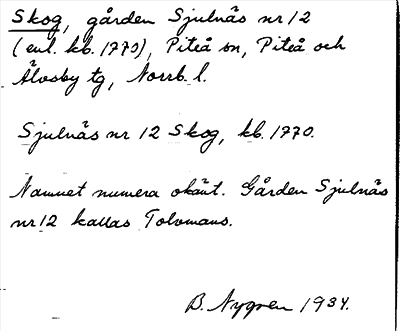 Skog, gården Sjulnäs nr 12
(enl. kb. 1770), Piteå sn, Piteå och
Älvsby tg, Norrb. l.
Sjulnäs nr 12 Skog, kb. 1770.
Namnet numera okänt. Gården Sjulnäs
nr 12 kallas Tolvmans.
B. Nygren 1934.